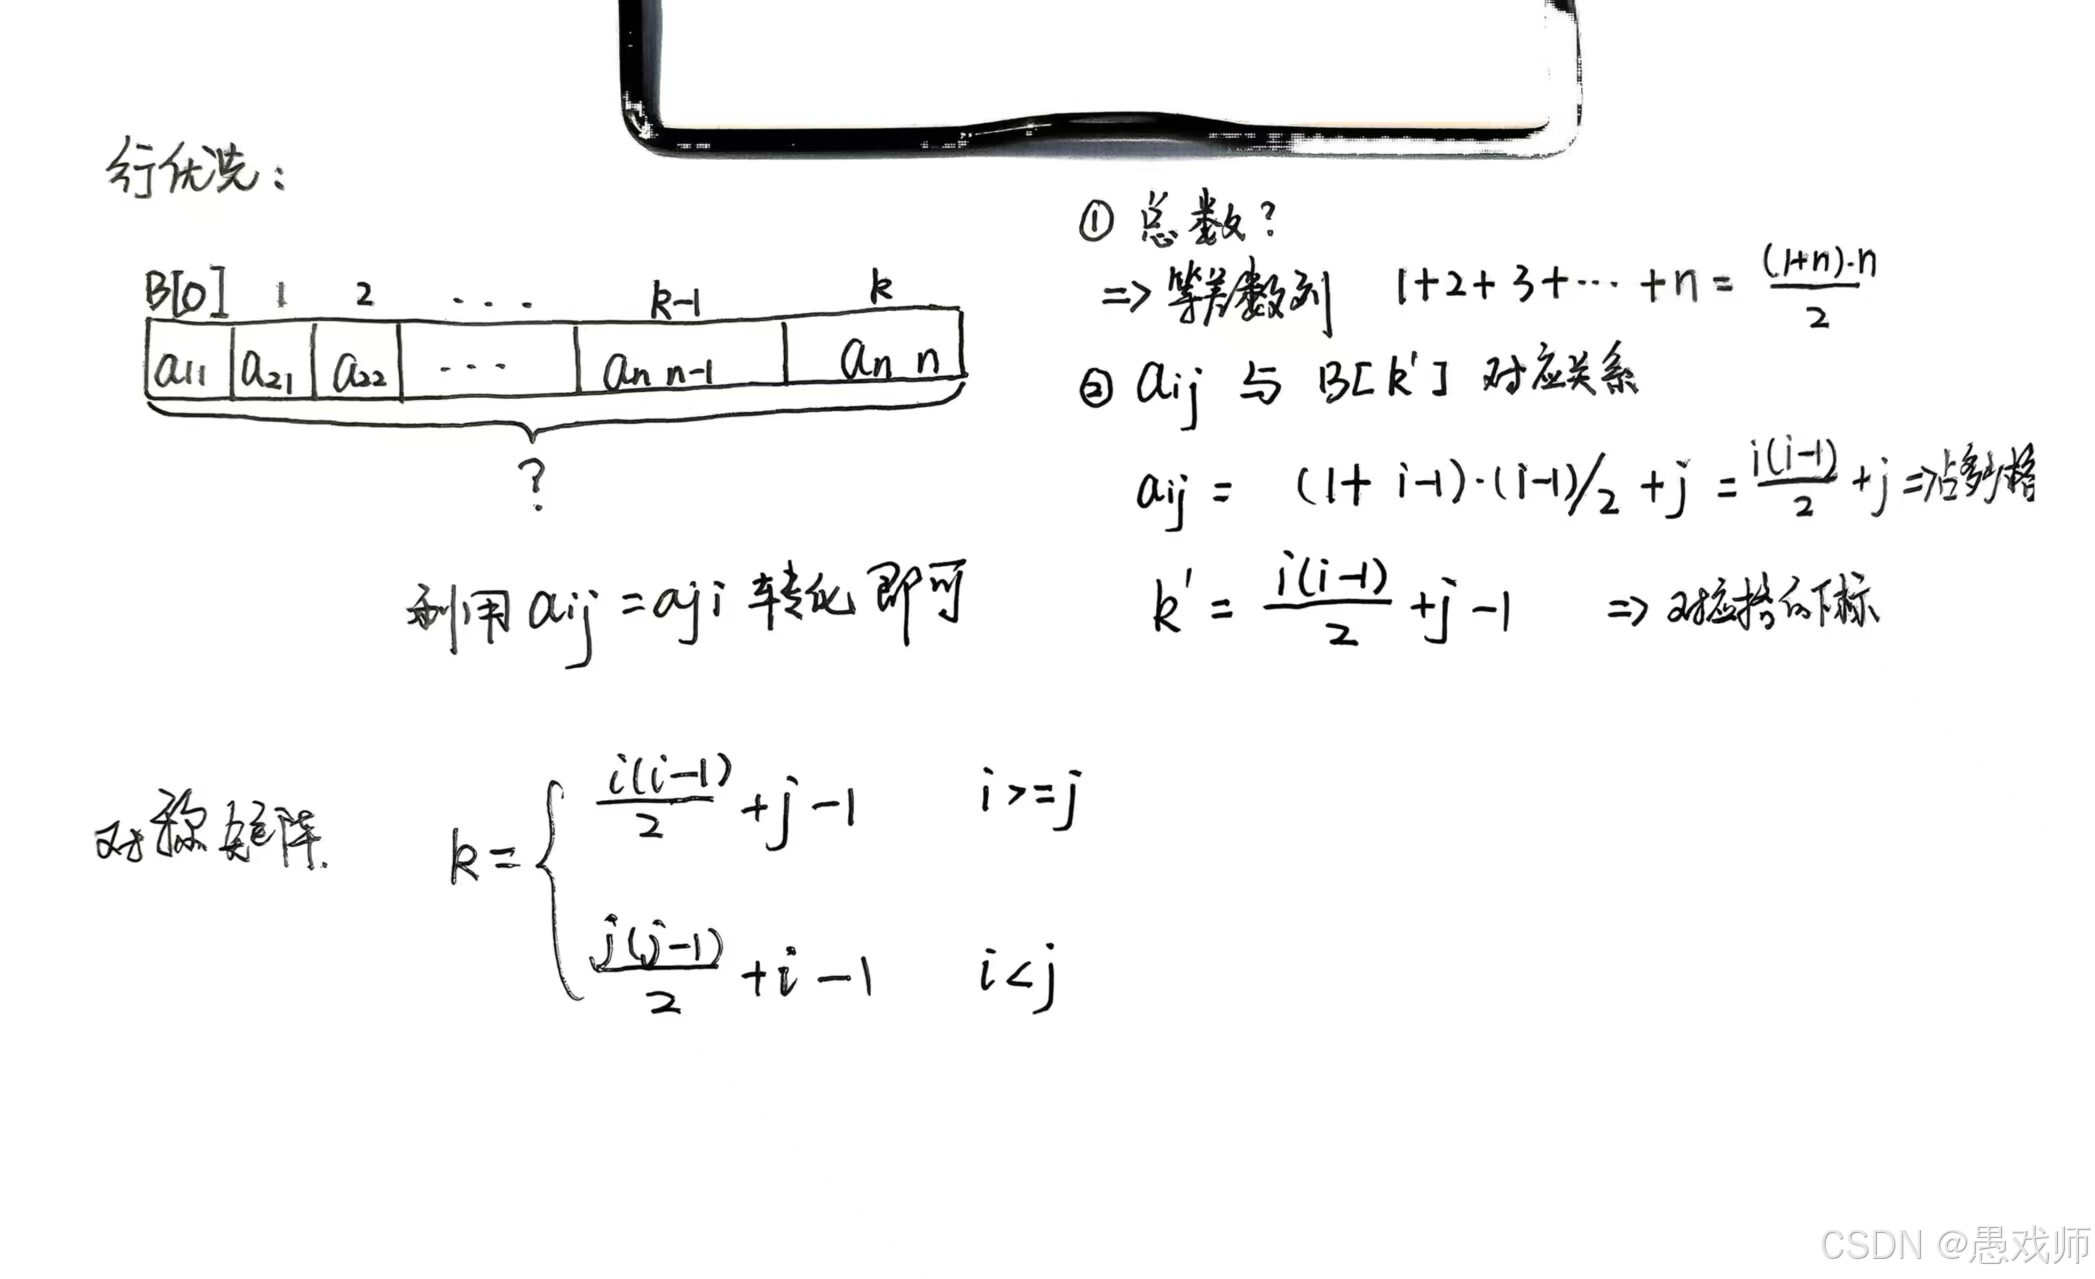 行优先：
B[0] 1 2 ... k-1 k
a11 a21 a22 ... an n-1 an n
?
利用 aij = aji 转化即可
① 总数?
=> 等差数列 1+2+3+···+n = (1+n)·n/2
② aij 与 B[k'] 对应关系
aij = (1+i-1)·(i-1)/2 + j = i(i-1)/2 + j => 占多少格
k' = i(i-1)/2 + j - 1 => 对应格的下标
对称矩阵.
k = { i(i-1)/2 + j - 1 i>=j
j(j-1)/2 + i - 1 i<j
CSDN @愚戏师